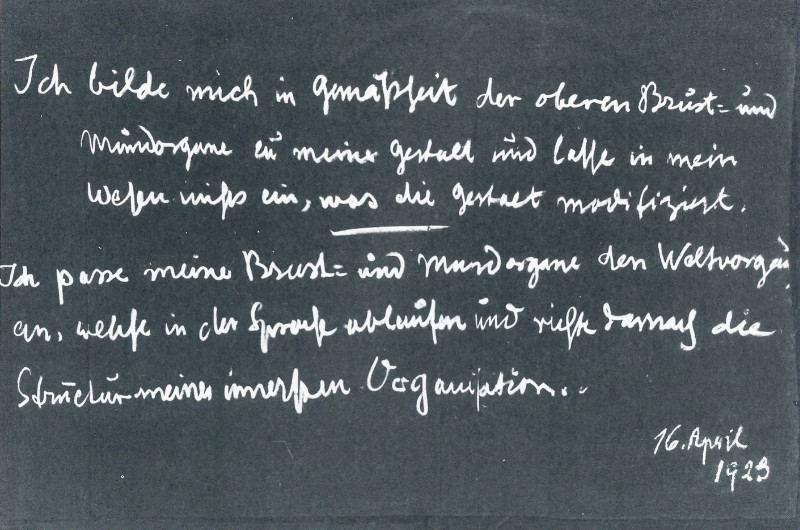 Ich bilde mich in Gemäßheit der oberen Brust= und
Mundorgane zu meiner Gestalt und lasse in mein
Wesen nichts ein, was die Gestalt modifiziert.
Ich passe meine Brust= und Mundorgane den Weltvorgän
an, welche in der Sprache ablaufen und richte darnach die
Structur meiner innersten Organisation..
16. April
1923